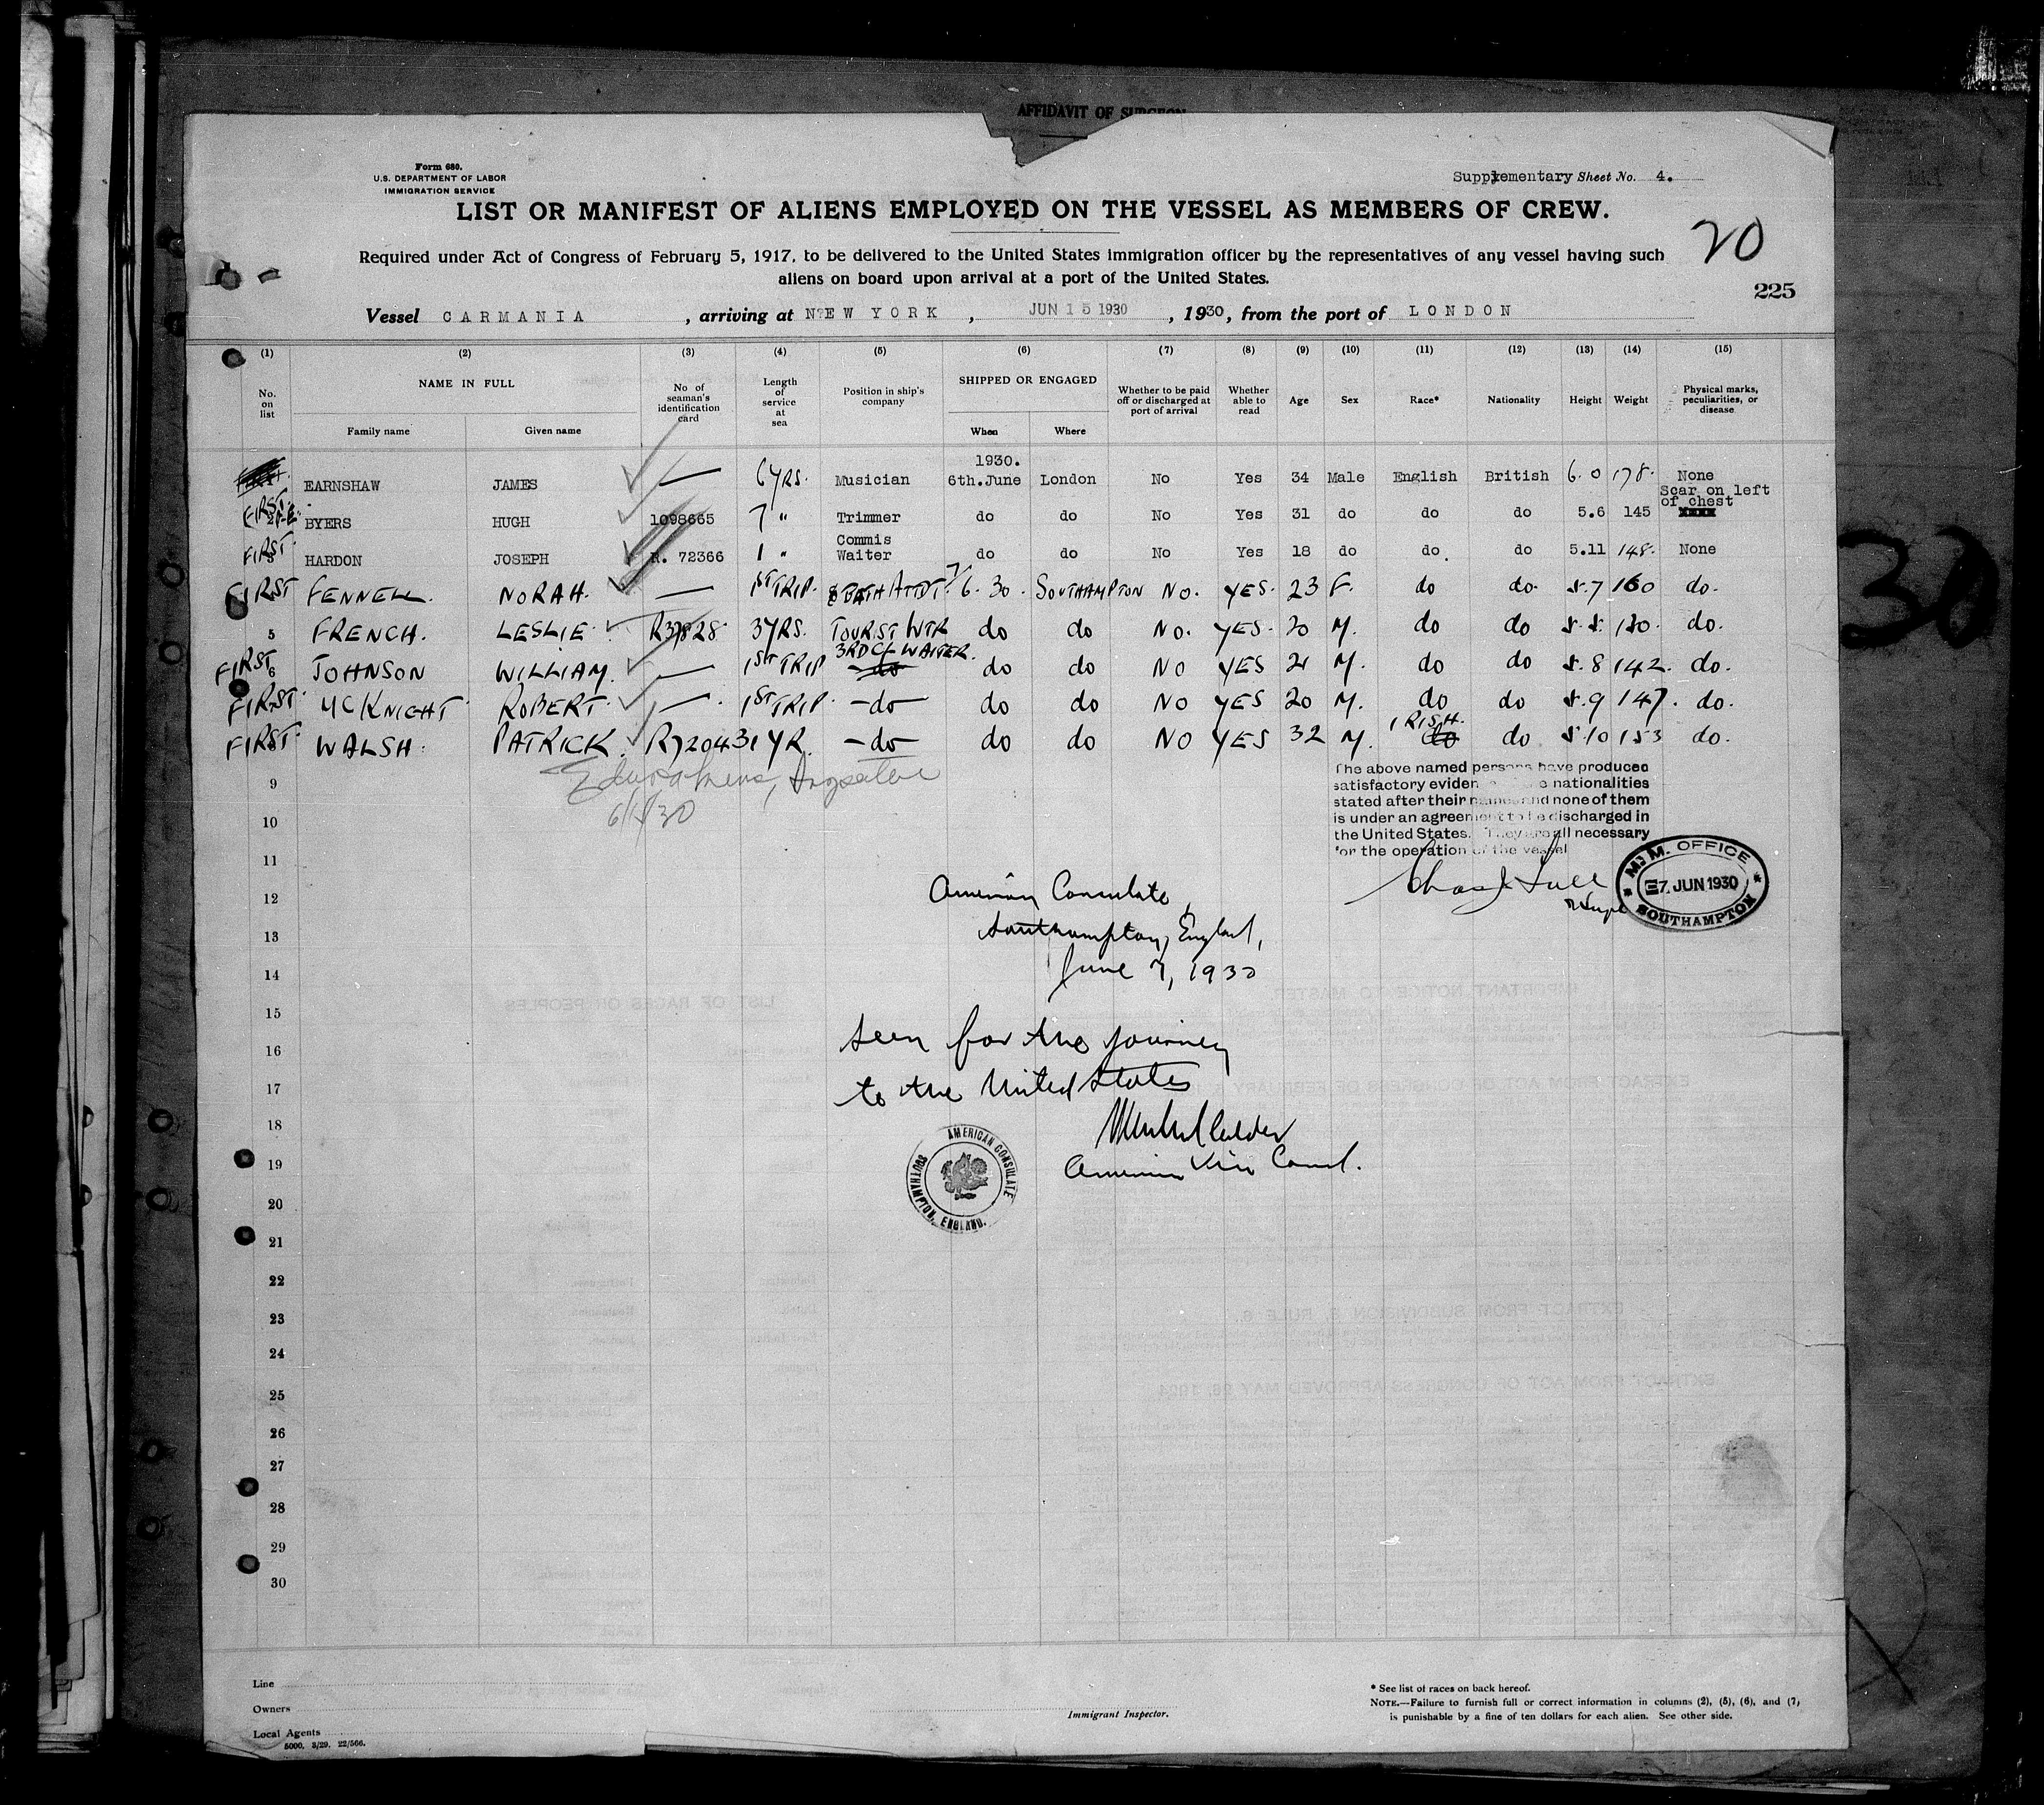 AFFIDAVIT OF SURGEON
Form 680.
U.S. DEPARTMENT OF LABOR
IMMIGRATION SERVICE
Supplementary Sheet No. 4.
LIST OR MANIFEST OF ALIENS EMPLOYED ON THE VESSEL AS MEMBERS OF CREW.
20
Required under Act of Congress of February 5, 1917, to be delivered to the United States immigration officer by the representatives of any vessel having such
aliens on board upon arrival at a port of the United States.
225
Vessel CARMANIA, arriving at NEW YORK, JUN 15 1930, 1930, from the port of LONDON
(1) (2) (3) (4) (5) (6) (7) (8) (9) (10) (11) (12) (13) (14) (15)
No. on list
NAME IN FULL
Family name Given name
No of seaman's identification card
Length of service at sea
Position in ship's company
SHIPPED OR ENGAGED
When Where
Whether to be paid off or discharged at port of arrival
Whether able to read
Age Sex Race* Nationality Height Weight
Physical marks, peculiarities, or disease
1930.
EARNSHAW JAMES — 6 YRS. Musician 6th.June London No Yes 34 Male English British 6.0 178. None
FIRST BYERS HUGH 1098665 7 " Trimmer do do No Yes 31 do do do 5.6 145 Scar on left of chest
FIRST HARDON JOSEPH R. 72366 1 " Commis Waiter do do No Yes 18 do do do 5.11 148. None
FIRST FENNELL. NORAH. — 1ST TRIP. BATH ATTDT. 7/6.30. SOUTHAMPTON NO. YES. 23 F. do do. 5.7 160 do.
5 FRENCH. LESLIE. R37828 3YRS. TOURIST WTR do do NO. YES. 20 M. do do 5.5. 130. do.
FIRST 6 JOHNSON WILLIAM. — 1ST TRIP 3RD CL WAITER. do do NO YES 21 M. do do 5.8 142. do.
FIRST MCKNIGHT ROBERT. — 1ST TRIP. —do— do do NO YES 20 M. do do 5.9 147. do.
FIRST WALSH. PATRICK. R72043 1 YR. —do— do do NO YES 32 M. IRISH. do 5.10 153 do.
The above named persons have produced
satisfactory eviden e nationalities
stated after their names and none of them
is under an agreement to be discharged in
the United States. They are all necessary
for the operation of the vessel
9
10
11
12
13
14
15
16
17
18
19
20
21
22
23
24
25
26
27
28
29
30
M.M. OFFICE
7 JUN 1930
SOUTHAMPTON
American Consulate,
Southampton, England,
June 7, 1930
Seen for the journey
to the United States
American Vice Consul.
AMERICAN CONSULATE
SOUTHAMPTON, ENGLAND.
30
Line
Owners
Local Agents
5000. 3/29. 22/566.
Immigrant Inspector.
* See list of races on back hereof.
NOTE.—Failure to furnish full or correct information in columns (2), (5), (6), and (7)
is punishable by a fine of ten dollars for each alien. See other side.